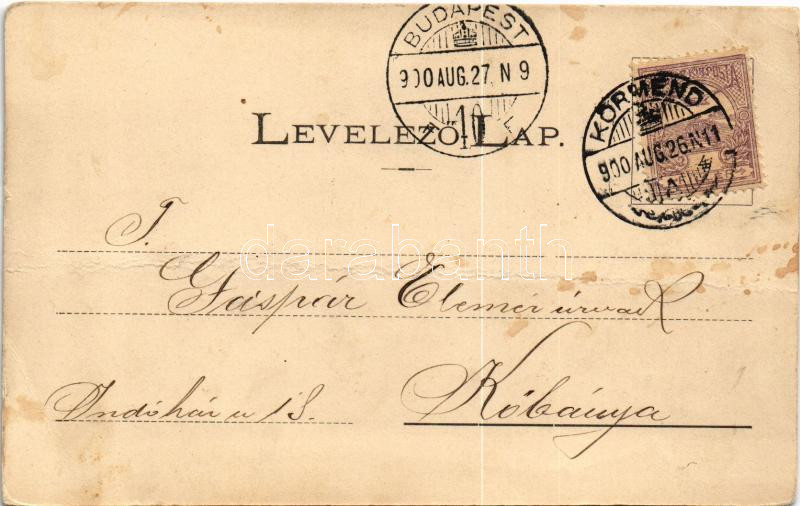 BUDAPEST
900 AUG.27. N 9
10
KÖRMEND
900 AUG.26.N11
LEVELEZŐ-LAP.
darabanth
T.
Gáspár Elemér úrnak
Kőbánya
Indóház u 13.